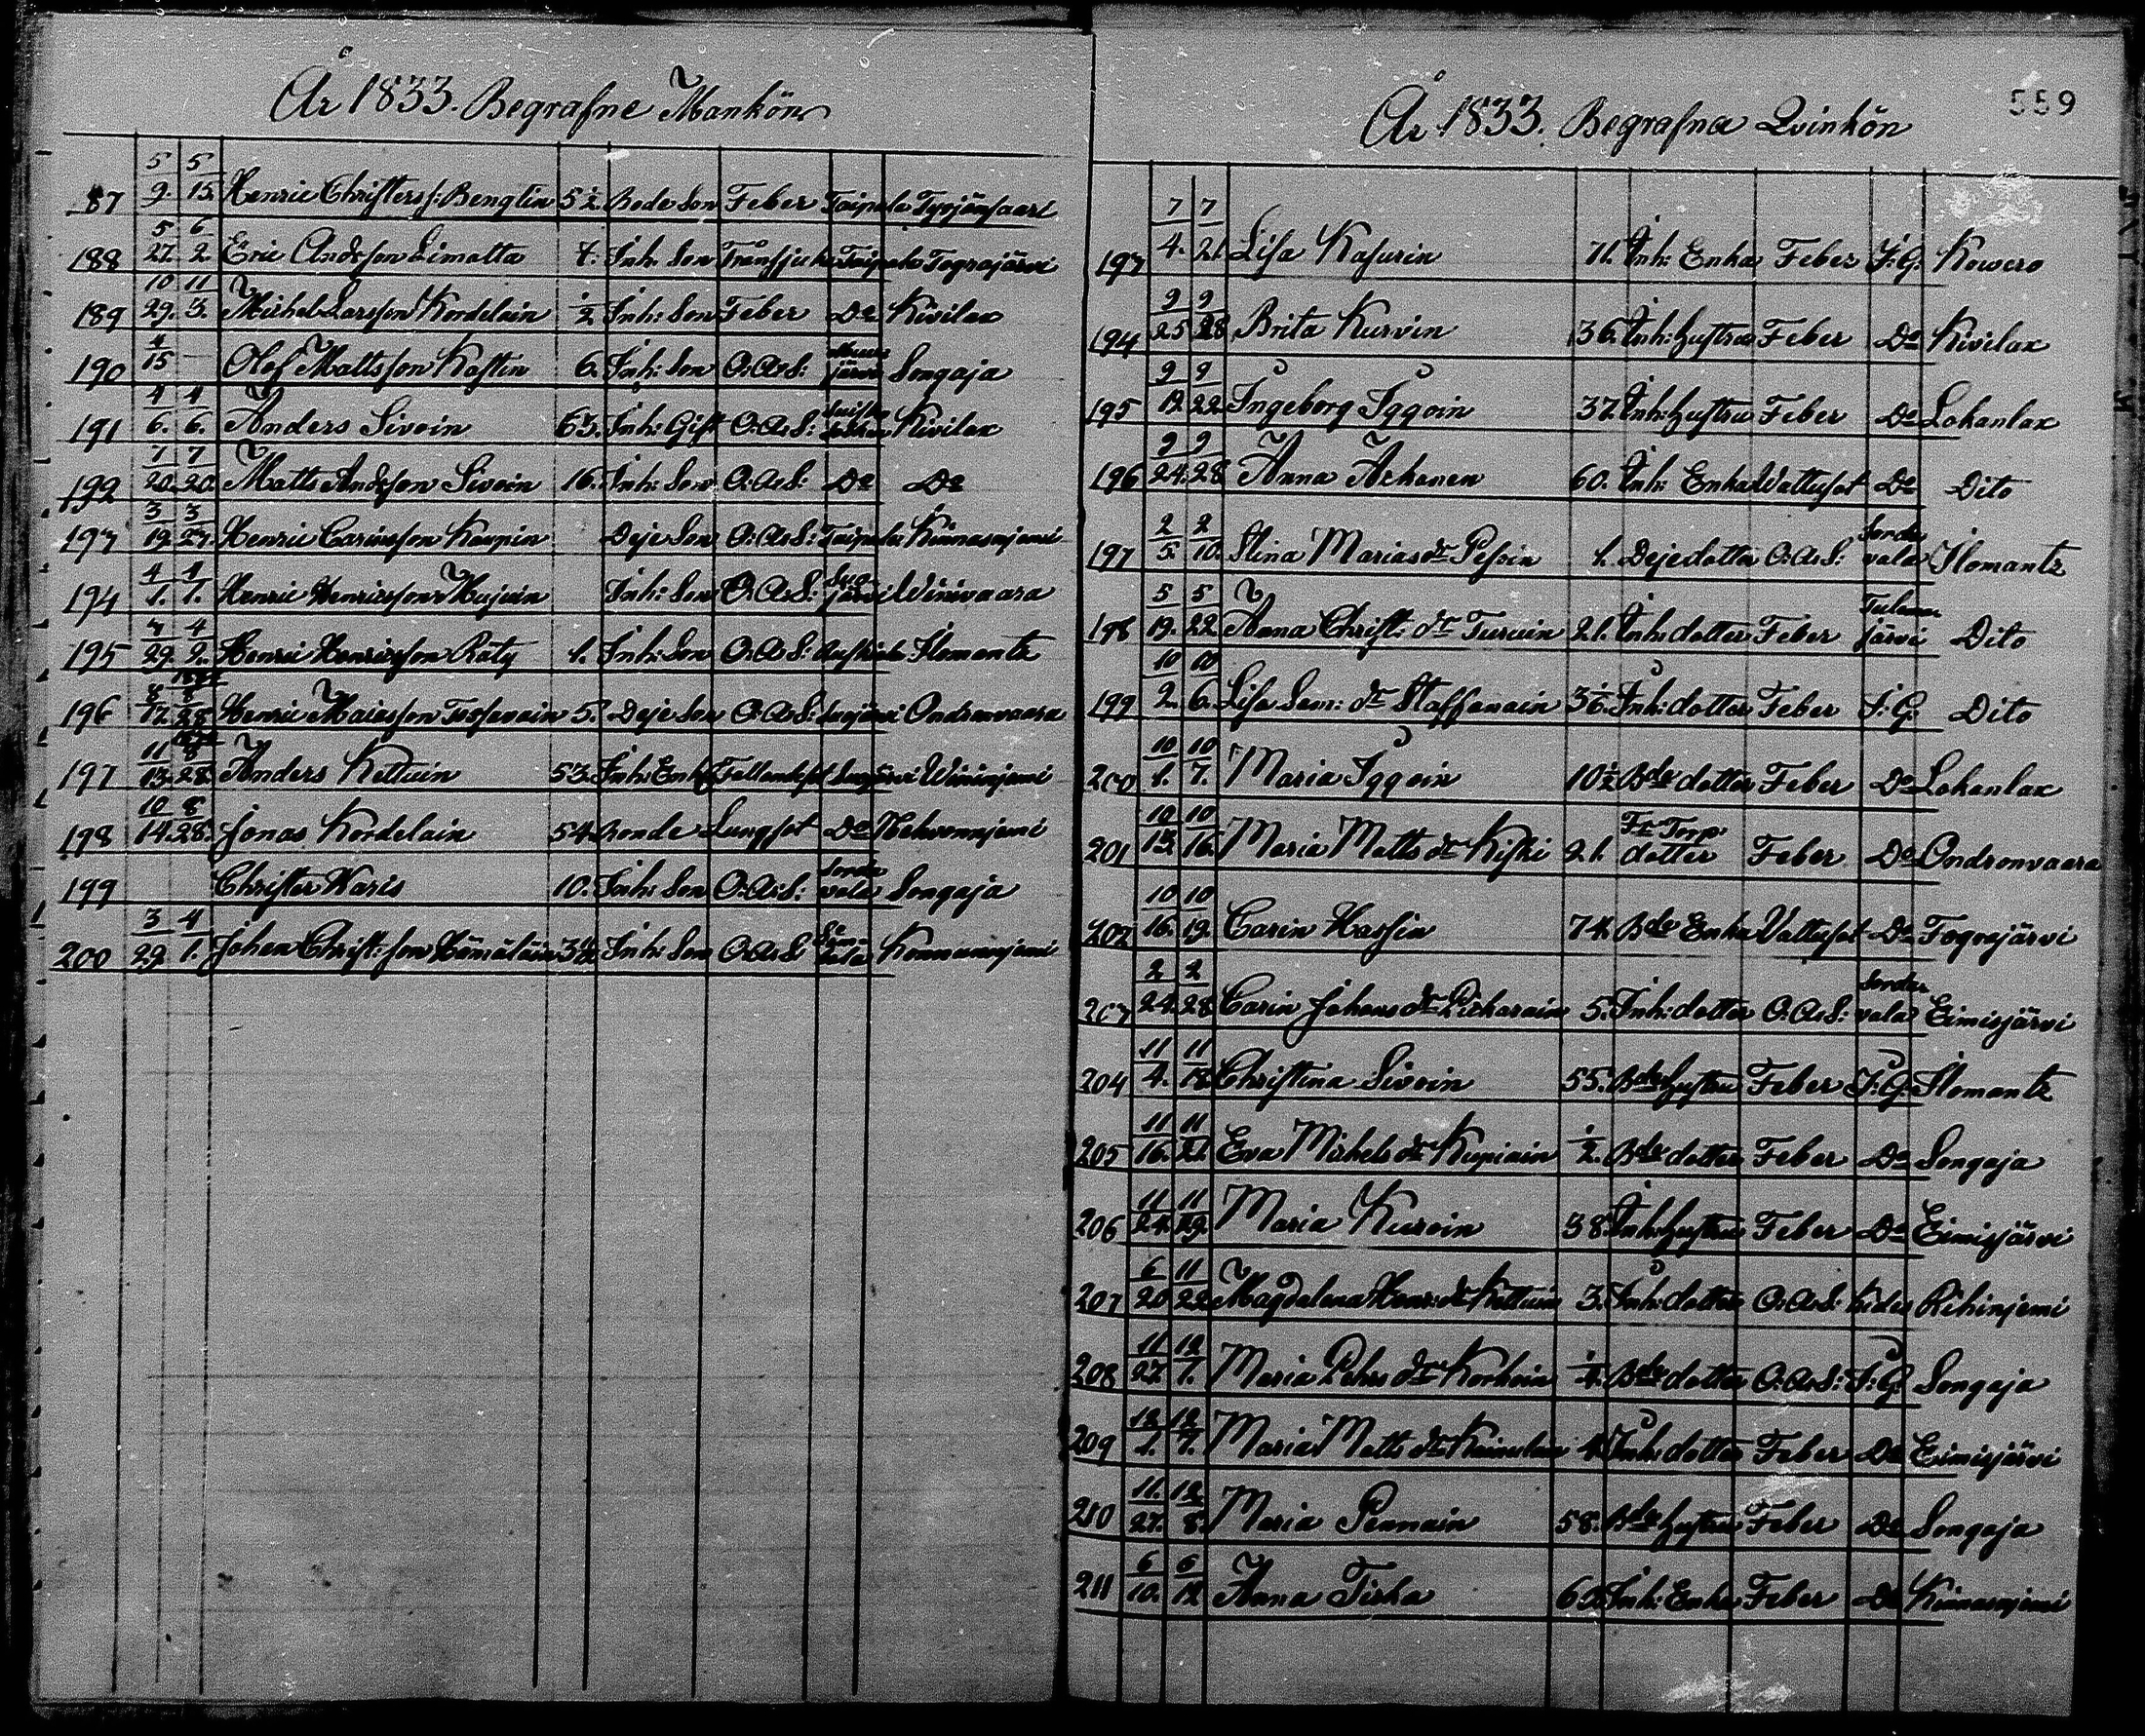 År 1833. Begrafne Mankön
87 5/9. 5/15. Henric Christers s: Bengtin 5½ Bode Son Feber Taipale Tyrjänsaari
188 5/27. 6/2. Eric Anderson Limatta 4. Inh: Son Trånsjuka Taipale Tograjärvi
189 10/29. 11/3. Michel Larsson Kordelain ½ Inh: Son Feber Do Kivilax
190 4/15 — Olof Mattsson Kastin 6. Inh: Son O: A: S: järvi Songaja
191 4/6. 4/6. Anders Sivoin 63. Inh: Gift O: A: S: Kivilax
192 7/20. 7/20 Matts Anderson Sivoin 16. Inh: Son O: A: S: Do Do
193 3/19. 3/27. Henric Carinsson Kaupin Deje Son O: A: S: Taipale Kinnasnjemi
194 4/1. 4/1. Henric Henricsson Inh: Son O: A: S: Suojärvi Winivaara
195 /29. 4/2. Henric Henricsson Räty 1. Inh: Son O: A: S: Ilomants
196 8/17. 8/28 Henric Maiasson 5. Deje Son O: A: S: Suojärvi Ondronvaara
197 11/13. 8/28. Anders Kettuin 53. Inh: Enkl Suojärvi Wininjemi
198 10/14. 8/28. Jonas Kordelain 54. Bonde Lungsot Do Mekrennjemi
199 Christer Waris 10. Inh: Son O: A: S: Sordavala Songaja
200 3/29. 4/1. Johan Christ: son Hämäläin Inh: Son O: A: S: Konnunnjemi
År 1833. Begrafna Qvinkön
559
193 7/4. 7/21. Lisa Kasurin 71. Inh: Enka Feber I: G: Kowero
194 9/25 9/28 Brita Kurvin 36. Inh: hustru Feber Do Kivilax
195 9/12 9/22 Ingeborg Iggoin 37. Inh: hustru Feber Do Lohanlax
196 9/24. 9/28 Anna Arhanen 60. Inh: Enka Vattusot Do Dito
197 2/5. 2/10. Stina Marias dr Pesoin 1. Deje dotter O: A: S: Sordavala Ilomants
198 5/19. 5/22 Anna Christ: dr Turuin 21. Inh: dotter Feber järvi Dito
199 10/2. 10/6. Lisa Sam: dr Staffanain Inh: dotter Feber I: G: Dito
200 10/1. 10/7. Maria Iggoin 10½ Bde dotter Feber Do Lohanlax
201 10/13. 10/16. Maria Matts dr Kiski 21. Torp dotter Feber Do Ondronvaara
202 10/16. 10/19. Carin Hassin 74. Bde Enka Vattusot Do Tograjärvi
203 2/24. 2/28 Carin Johans dr Pickarain 5. Inh: dotter O: A: S: Sordavala Eimisjärvi
204 11/4. 11/18. Christina Sivoin 55. Bde hustru Feber I: G: Ilomants
205 11/16. 11/21. Eva Michels dr Kupiain ½. Bde dotter Feber Do Songaja
206 11/24. 11/29. Maria Kuroin 38. Inh: hustru Feber Do Eimisjärvi
207 6/20 11/22 Magdalena Henr: dr Kettuin 3. Inh: dotter O: A: S: Kides Rihinjemi
208 11/27. 12/1. Maria Pehrs dr Korhoin Bde dotter O: A: S: I: G: Songaja
209 12/1. 12/7. Maria Matts dr Kainulain 4. Inh: dotter Feber Do Eimisjärvi
210 11/27. 12/8. Maria Pennain 58. Bde hustru Feber Do Songaja
211 6/10. 6/12 Anna Tiska Inh: Enka Feber Do Kinnasnjemi